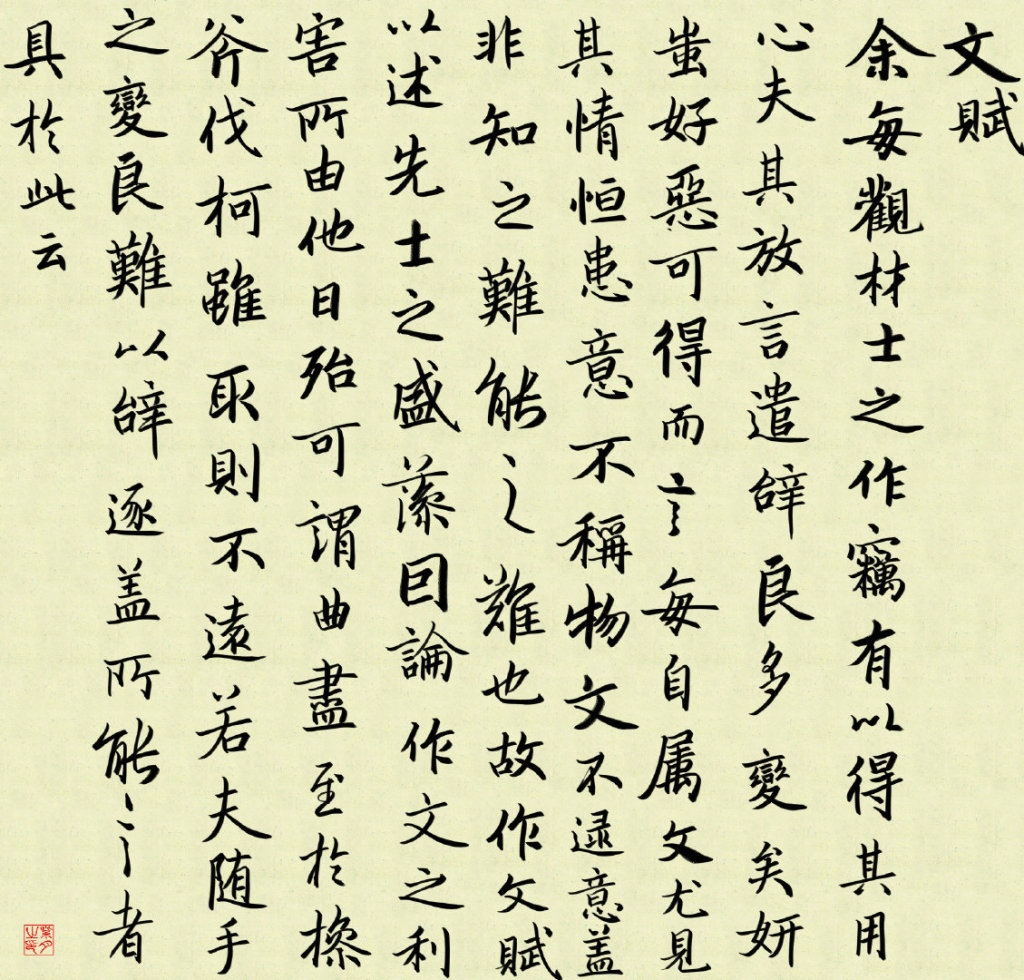 文賦
余每觀材士之作竊有以得其用
心夫其放言遣辝良多變矣妍
蚩好惡可得而言每自属文尤見
其情恒患意不稱物文不逮意盖
非知之難能之難也故作文賦
以述先士之盛藻因論作文之利
害所由他日殆可謂曲盡至於操
斧伐柯雖取則不遠若夫随手
之變良難以辝逐盖所能言者
具於此云